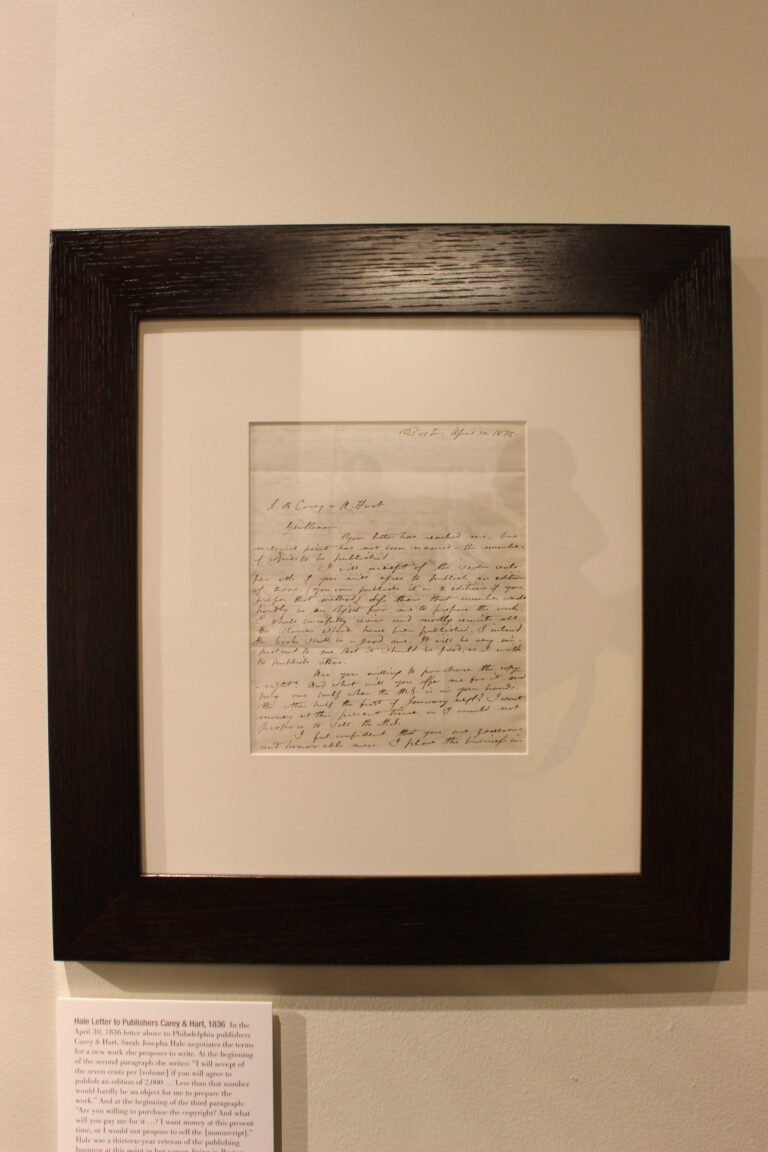 Boston April 30. 1836.
A. Hart
Gentlemen,
Your letter has reached me. One
material point has not been named – the number
of copies to be published.
I will accept of the seven cents
per vol. if you will agree to publish an edition
of 2000. (You can publish it in 2 editions if you
prefer that method) less than that number would
hardly be an object for me to prepare the work.
I shall carefully revise and mostly rewrite all
the stories which have been published. I intend
the book shall be a good one. It will be very im-
portant to me that it should be good, as I wish
to publish other.
Are you willing to purchase the copy
-right? And what will you offer me for it and
pay one half when the M.S. is in your hands
the other half the first of January next? I want
money at this present time, or I would not
propose to sell the M.S.
I feel confident that you are generous
and honorable men. I place the business in
Hale Letter to Publishers Carey & Hart, 1836 In the
April 30, 1836 letter above to Philadelphia publishers
Carey & Hart, Sarah Josepha Hale negotiates the terms
for a new work she proposes to write. At the beginning
of the second paragraph she writes: “I will accept of
the seven cents per [volume] if you will agree to
publish an edition of 2,000 ... Less than that number
would hardly be an object for me to prepare the
work.” And at the beginning of the third paragraph:
“Are you willing to purchase the copyright? And what
will you pay me for it ...? I want money at this present
time, or I would not propose to sell the [manuscript].”
Hale was a thirteen-year veteran of the publishing
business at this point in her career, living in Boston